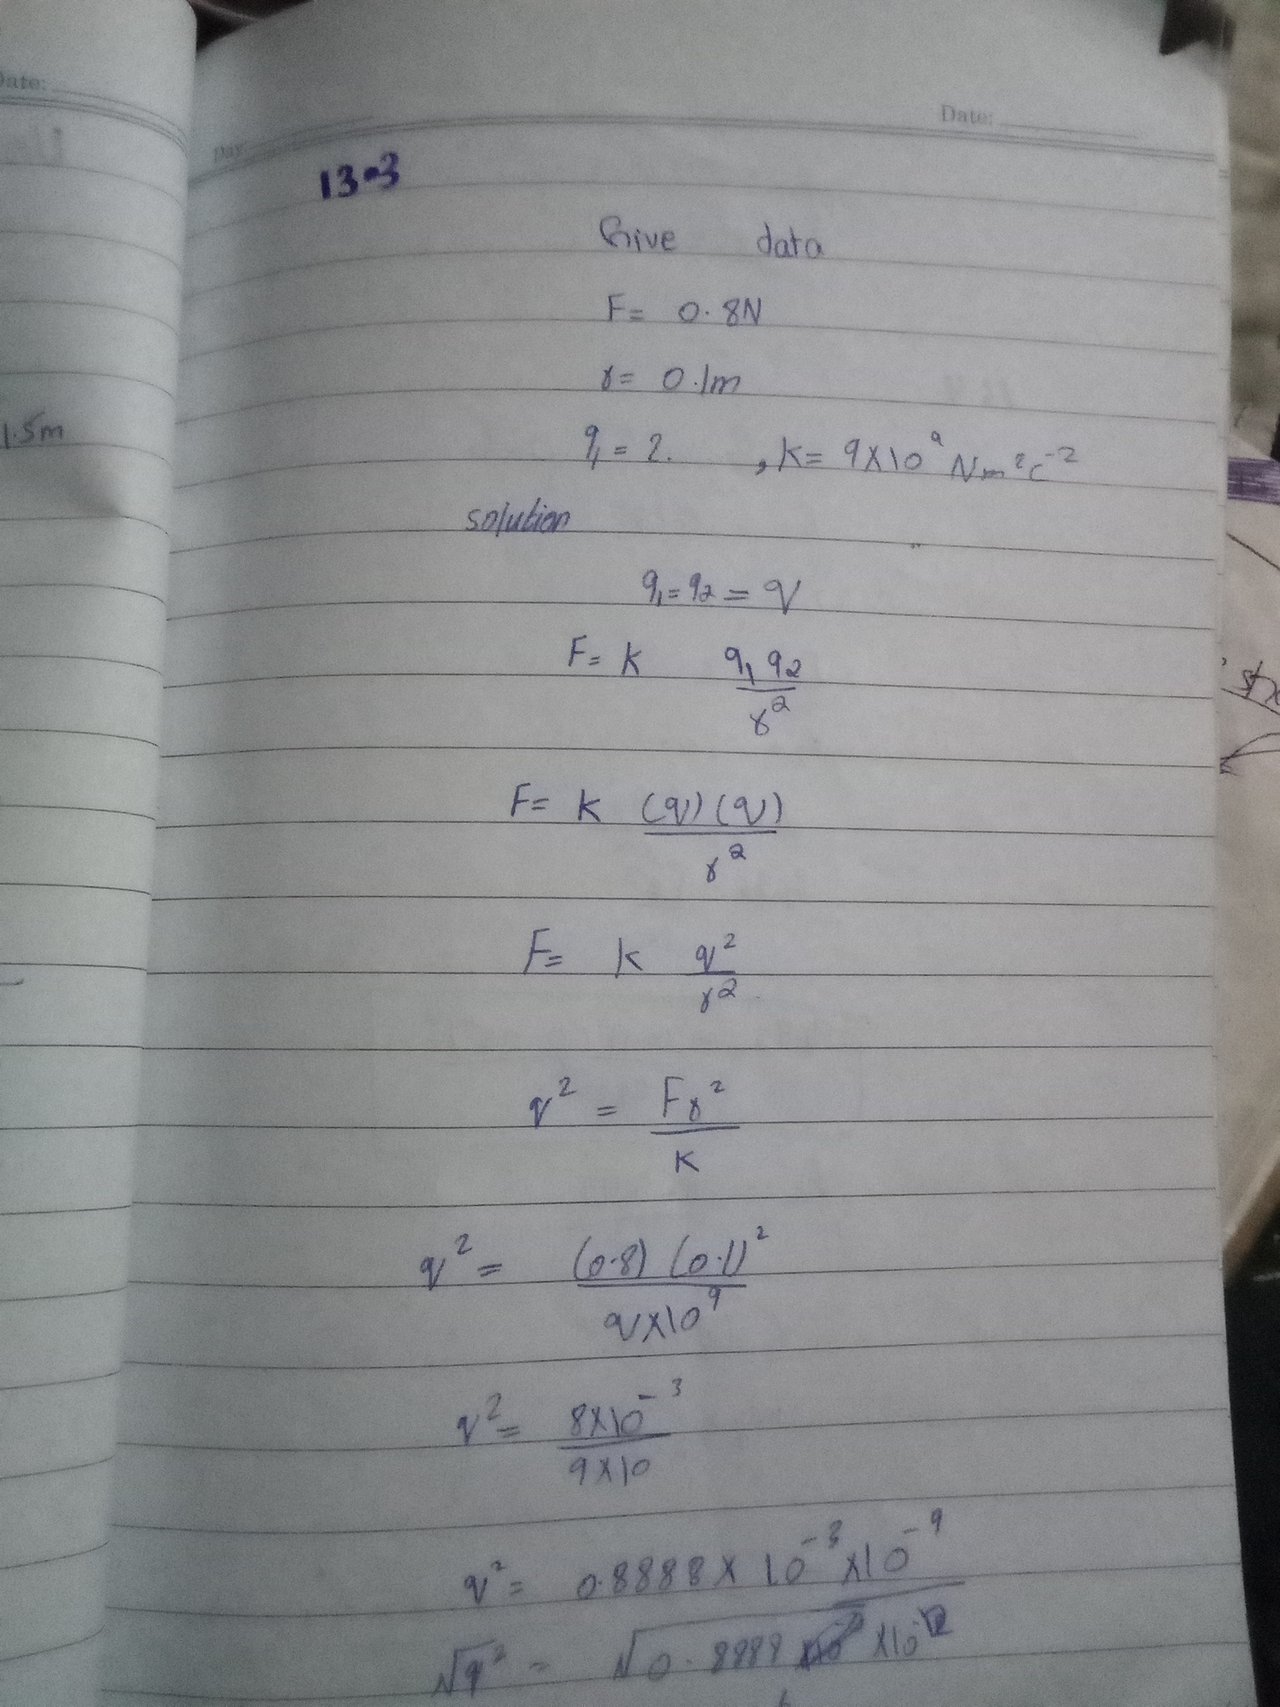 Date:
Date:
Day
13.3
Give data
F= 0.8N
r= 0.1m
1.5m
q₁= ?. , K= 9X10⁹ Nm²c⁻²
solution
q₁=q₂=q
F= K q₁q₂/r²
F= K (q)(q)/r²
F= K q²/r²
q² = Fr²/K
q²= (0.8) (0.1)²/9X10⁹
q²= 8X10⁻³/9X10
q²= 0.8888X 10⁻³X10⁻⁹
√q² = √0.8888 X10⁻¹²